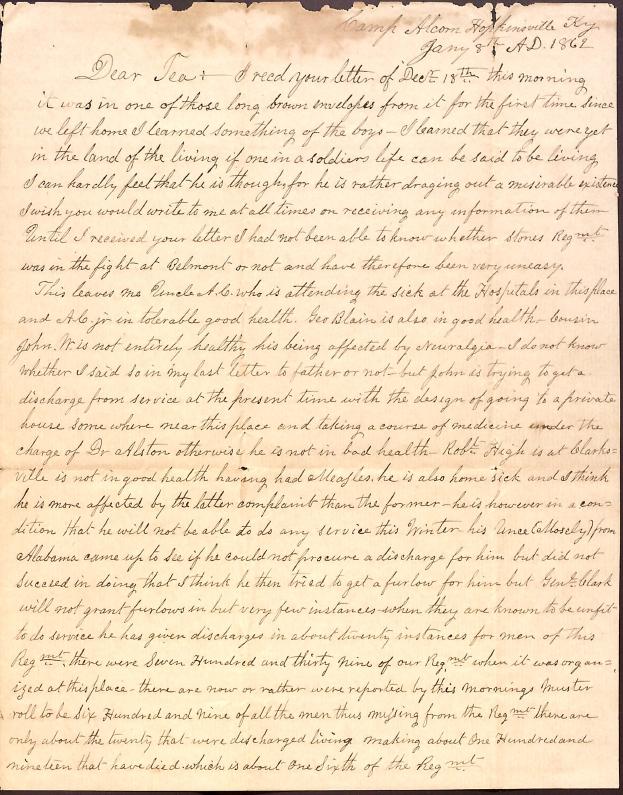 Camp Alcorn Hopkinsville Ky
Jany 8th A.D. 1862
Dear Tea I recd your letter of Decr 18th this morning
it was in one of those long brown envelopes from it for the first time since
we left home I learned something of the boys - I learned that they were yet
in the land of the living if one in a soldiers life can be said to be living
I can hardly feel that he is though, for he is rather draging out a miserable existence
I wish you would write to me at all times on receiving any information of them
Until I received your letter I had not been able to know whether Stones Regmt
was in the fight at Belmont or not and have therefore been very uneasy.
This leaves me Uncle A.C. who is attending the sick at the Hospitals in this place
and A.C. jr in tolerable good health. Geo Blain is also in good health - Cousin
John. W. is not entirely healthy his being affected by Neuralgia - I do not know
whether I said so in my last letter to father or not - but John is trying to get a
discharge from service at the present time with the design of going to a private
house some where near this place and taking a course of medicine under the
charge of Dr Alston otherwise he is not in bad health - Robt High is at Clarks=
ville is not in good health having had Measles. he is also home sick and I think
he is more affected by the latter complaint than the former - he is however in a con=
dition that he will not be able to do any service this Winter his Unce (Mosely) from
Alabama came up to see if he could not procure a discharge for him but did not
succeed in doing that I think he then tried to get a furlow for him but Genl Clark
will not grant furlows in but very few instances - when they are known to be unfit
to do service he has given discharges in about twenty instances for men of this
Regmt. there were Seven Hundred and thirty nine of our Regmt when it was organ=
ized at this place - there are now or rather were reported by this mornings Muster
roll to be Six Hundred and nine of all the men thus missing from the Regmt there are
only about the twenty that were discharged living making about One Hundred and
nineteen that have died which is about One Sixth of the Regmt